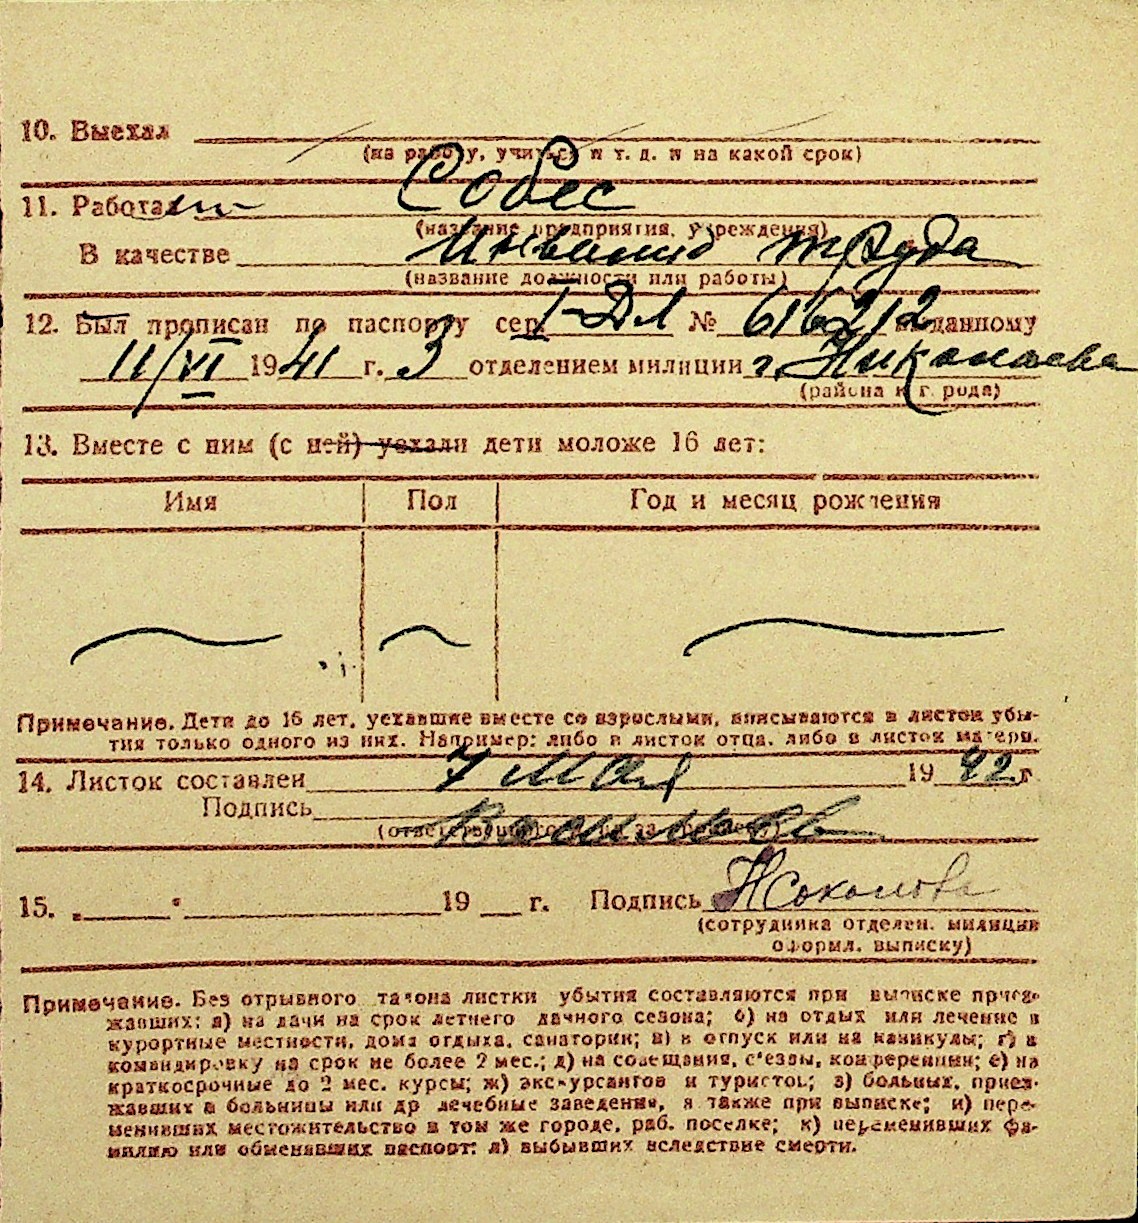 10. Выехал
(на работу, учиться и т. д. и на какой срок)
11. Работал Собес
(название предприятия, учреждения)
В качестве Инвалид труда
(название должности или работы)
12. Был прописан по паспорту сер. № 616212 выданному
11/VI 1941 г. 3 отделением милиции г. Николаева
(района и г. рода)
13. Вместе с ним (с ней) уехали дети моложе 16 лет:
Имя Пол Год и месяц рождения
Примечание. Дети до 16 лет, уехавшие вместе со взрослыми, вписываются в листок убы-
тия только одного из них. Например: либо в листок отца, либо в листок матери.
14. Листок составлен 7 мая 1942 г.
Подпись
15. 19 г. Подпись Соколова
(сотрудника отделен. милиции
оформл. выписку)
Примечание. Без отрывного талона листки убытия составляются при выписке приез-
жавших: а) на дачи на срок летнего дачного сезона; б) на отдых или лечение в
курортные местности, дома отдыха, санатории; в) в отпуск или на каникулы; г) в
командировку на срок не более 2 мес.; д) на совещания, с'езды, конференции; е) на
краткосрочные до 2 мес. курсы; ж) экскурсантов и туристов; з) больных, приез-
жавших в больницы или др лечебные заведения, а также при выписке; и) пере-
менивших местожительство в том же городе, раб. поселке; к) переменивших фа-
милию или обменявших паспорт: л) выбывших вследствие смерти.